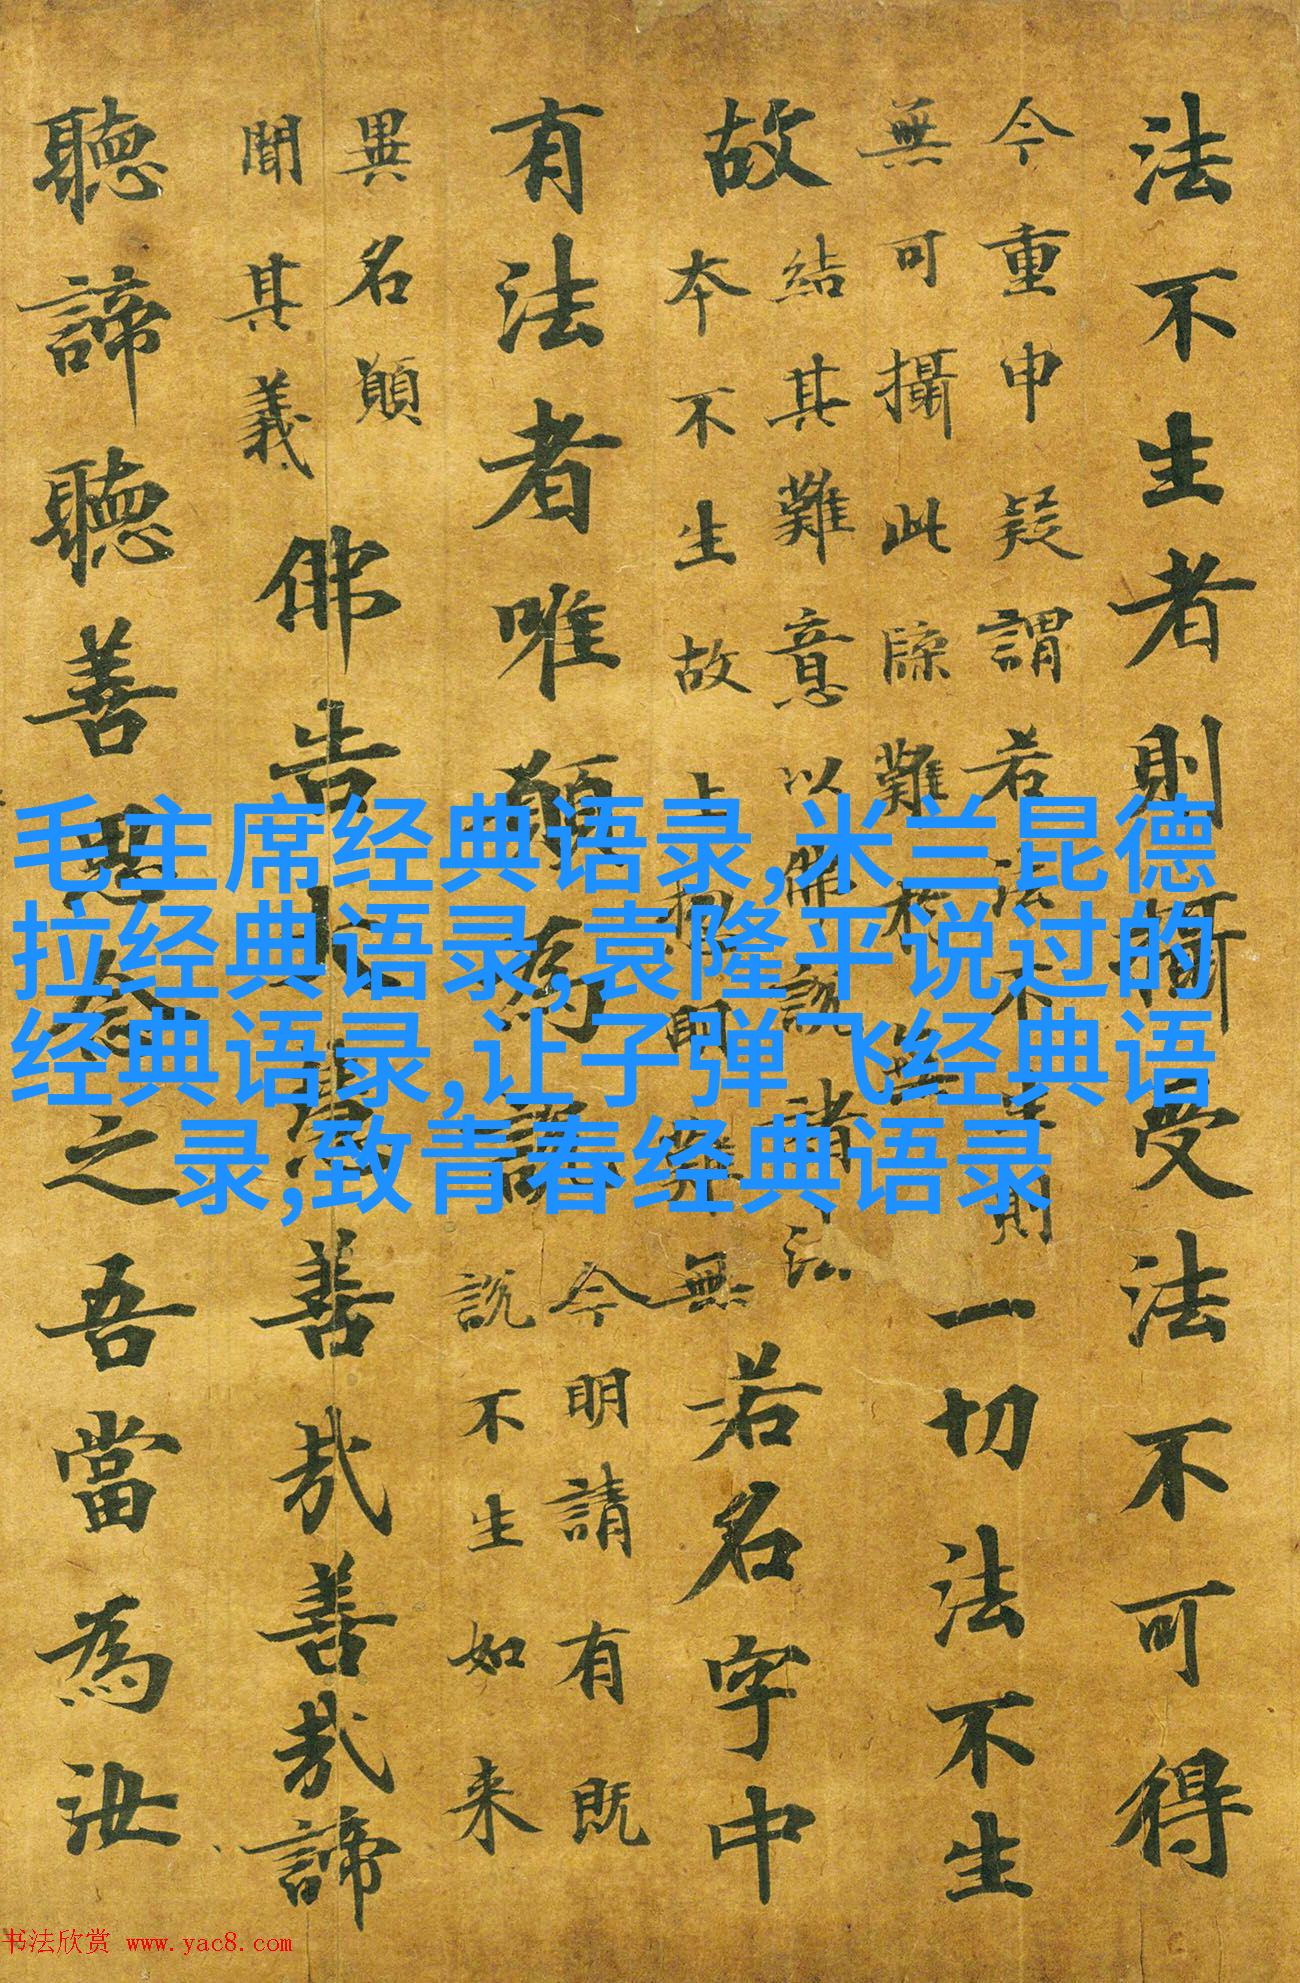 法不生者則受法不可得
今重申疑謂若法不生則
無可攝此牒難
一切法不生
故
結其難意以佛說諸法
本不生故
無
若名字中
有法者唯願為說
今明請有既
說不生如来
異名願
聞其義
佛告大慧善哉善哉諦
聽諦聽善思念之吾當為汝
毛主席经典语录,米兰昆德
拉经典语录,袁隆平说过的
经典语录,让子弹飞经典语
录,致青春经典语录
书法欣赏 www.yac8.com